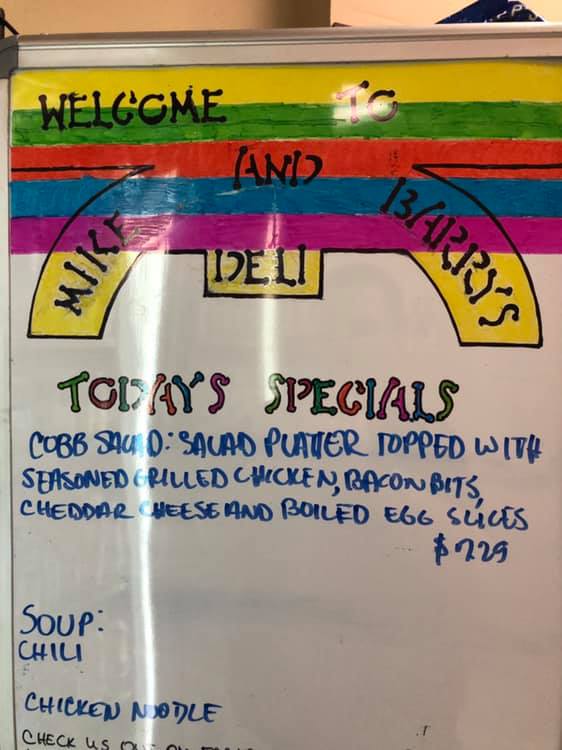 WELCOME TO
MIKE AND BARRY'S
DELI
TODAY'S SPECIALS
COBB SALAD: SALAD PLATTER TOPPED WITH
SEASONED GRILLED CHICKEN, BACON BITS,
CHEDDAR CHEESE AND BOILED EGG SLICES
$7.29
SOUP:
CHILI
CHICKEN NOODLE
CHECK US OUT ON